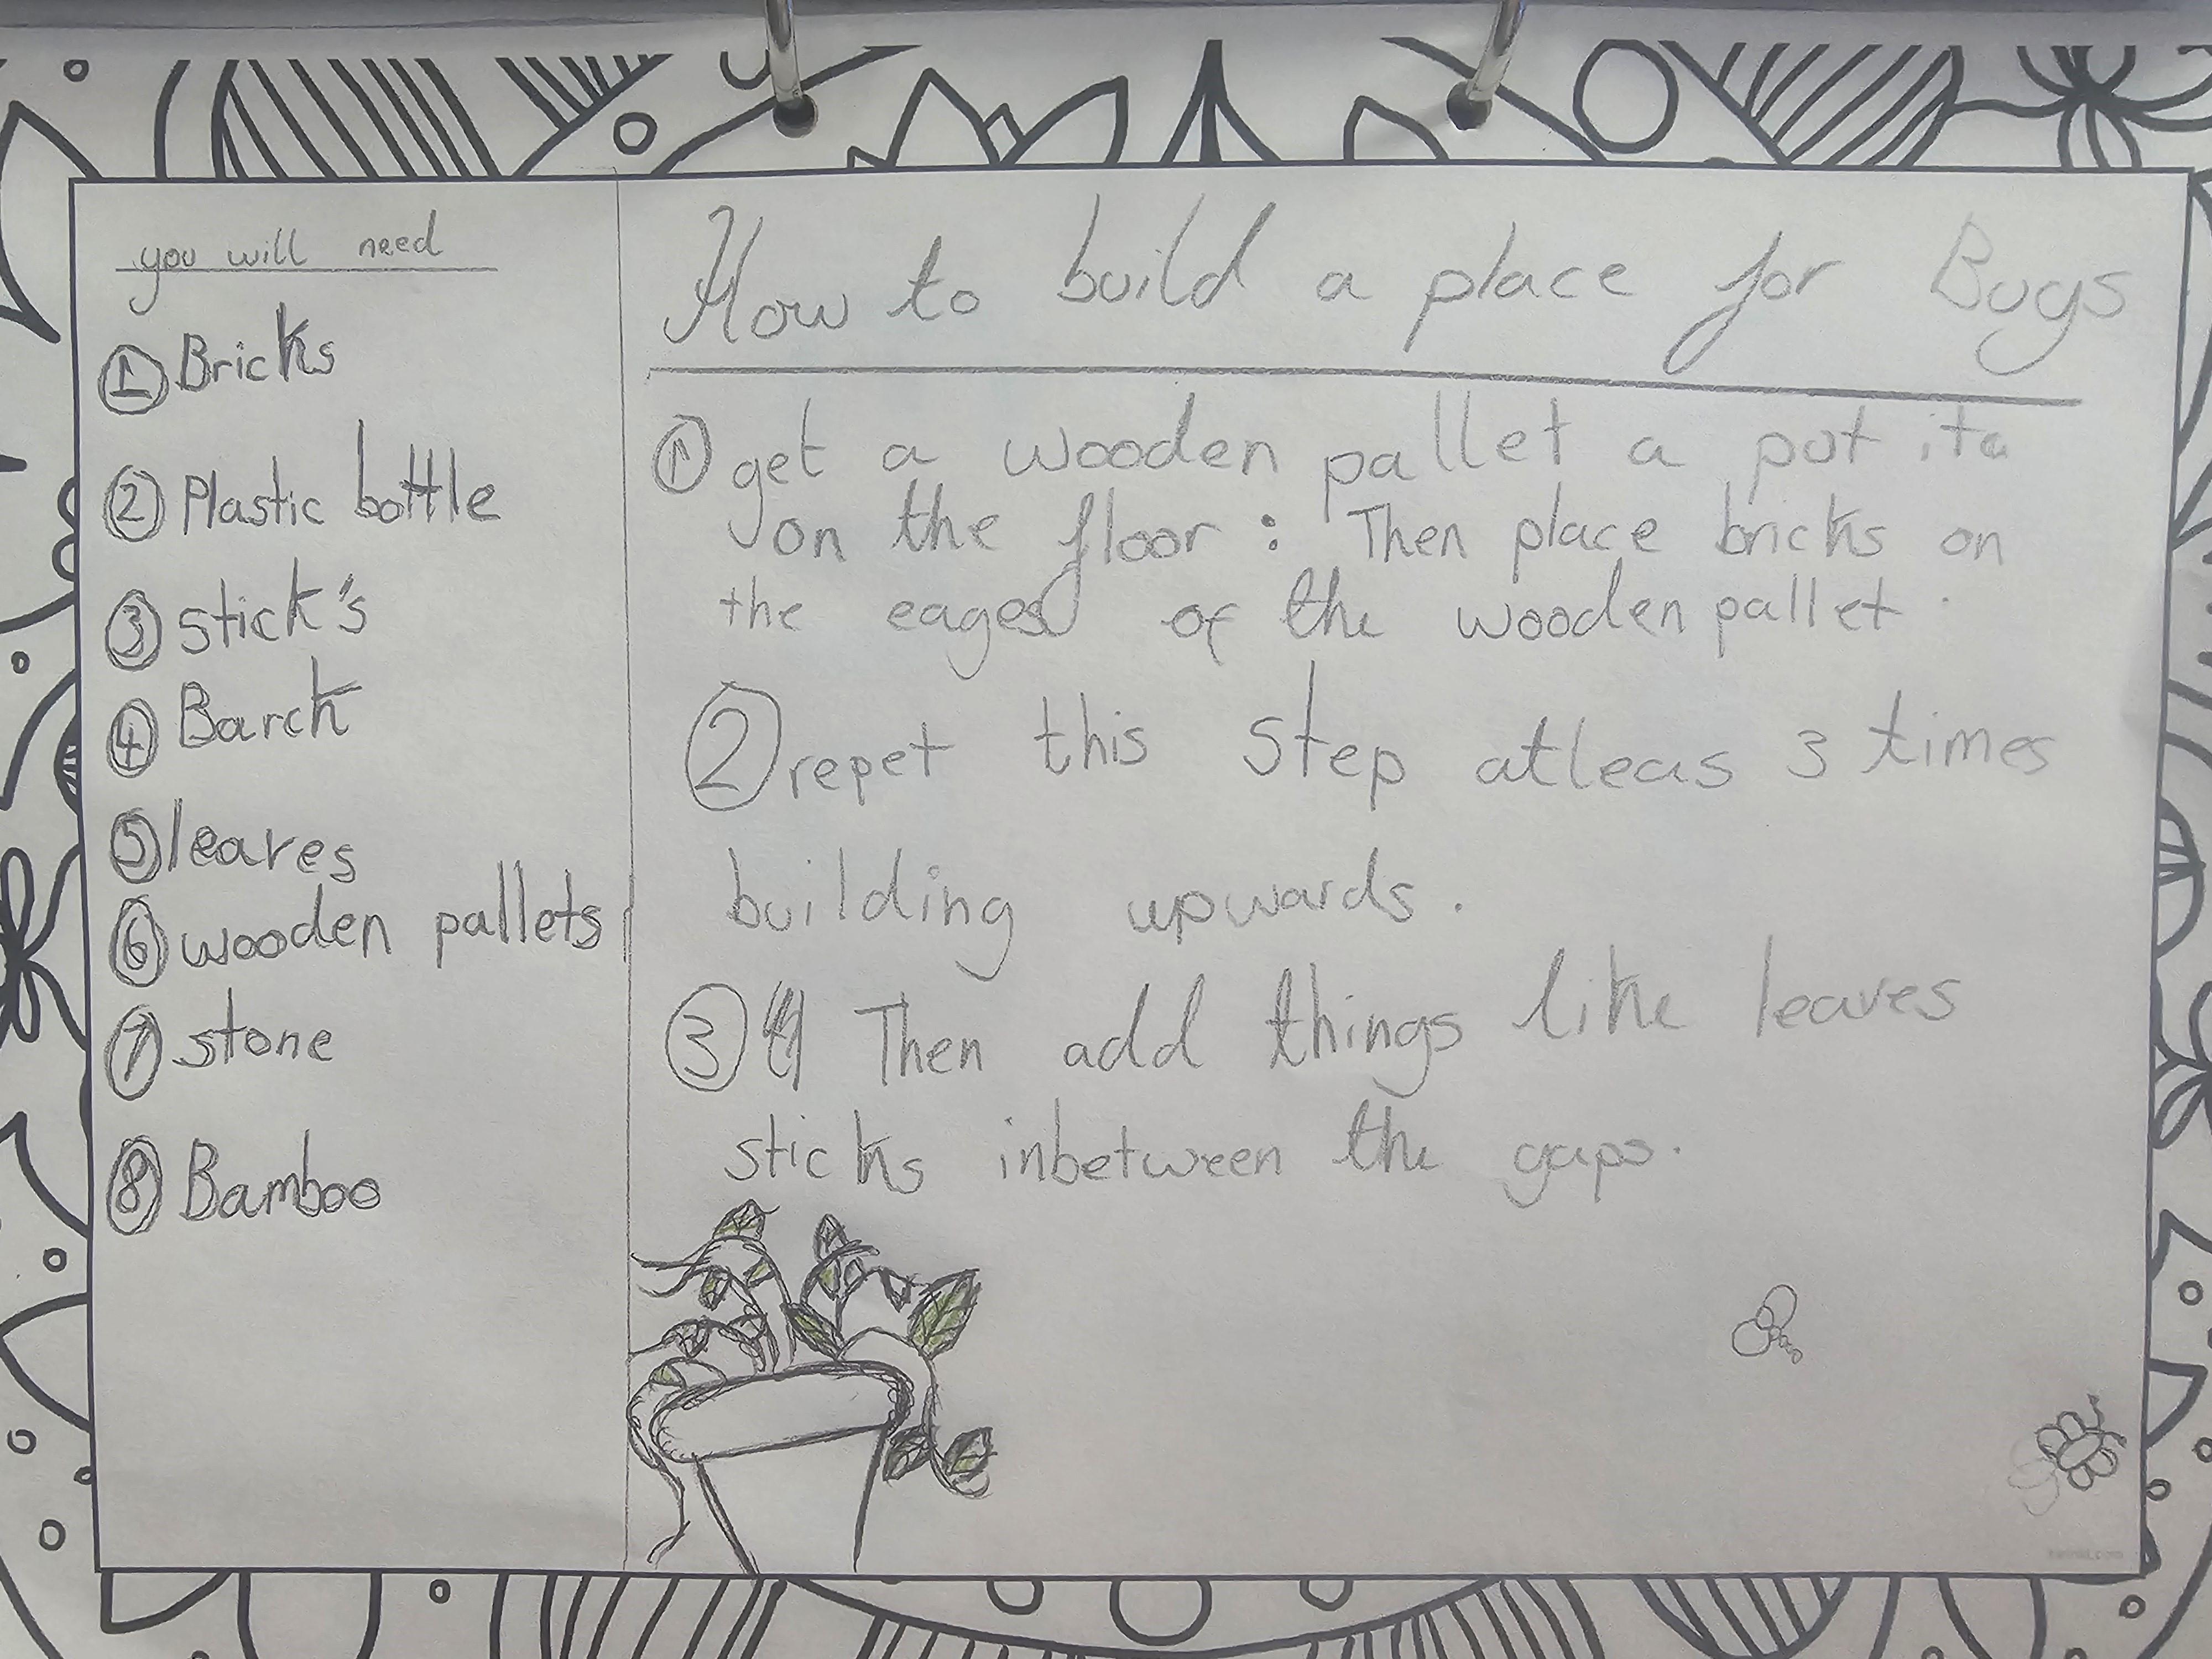 you will need
① Bricks
② Plastic bottle
③ stick's
④ Barck
⑤ leaves
⑥ wooden pallets
⑦ stone
⑧ Bamboo
How to build a place for Bugs
① get a wooden pallet a put it
on the floor : Then place bricks on
the eages of the wooden pallet.
② repet this step atleas 3 times
building upwards.
③ Then add things like leaves
sticks inbetween the gaps.